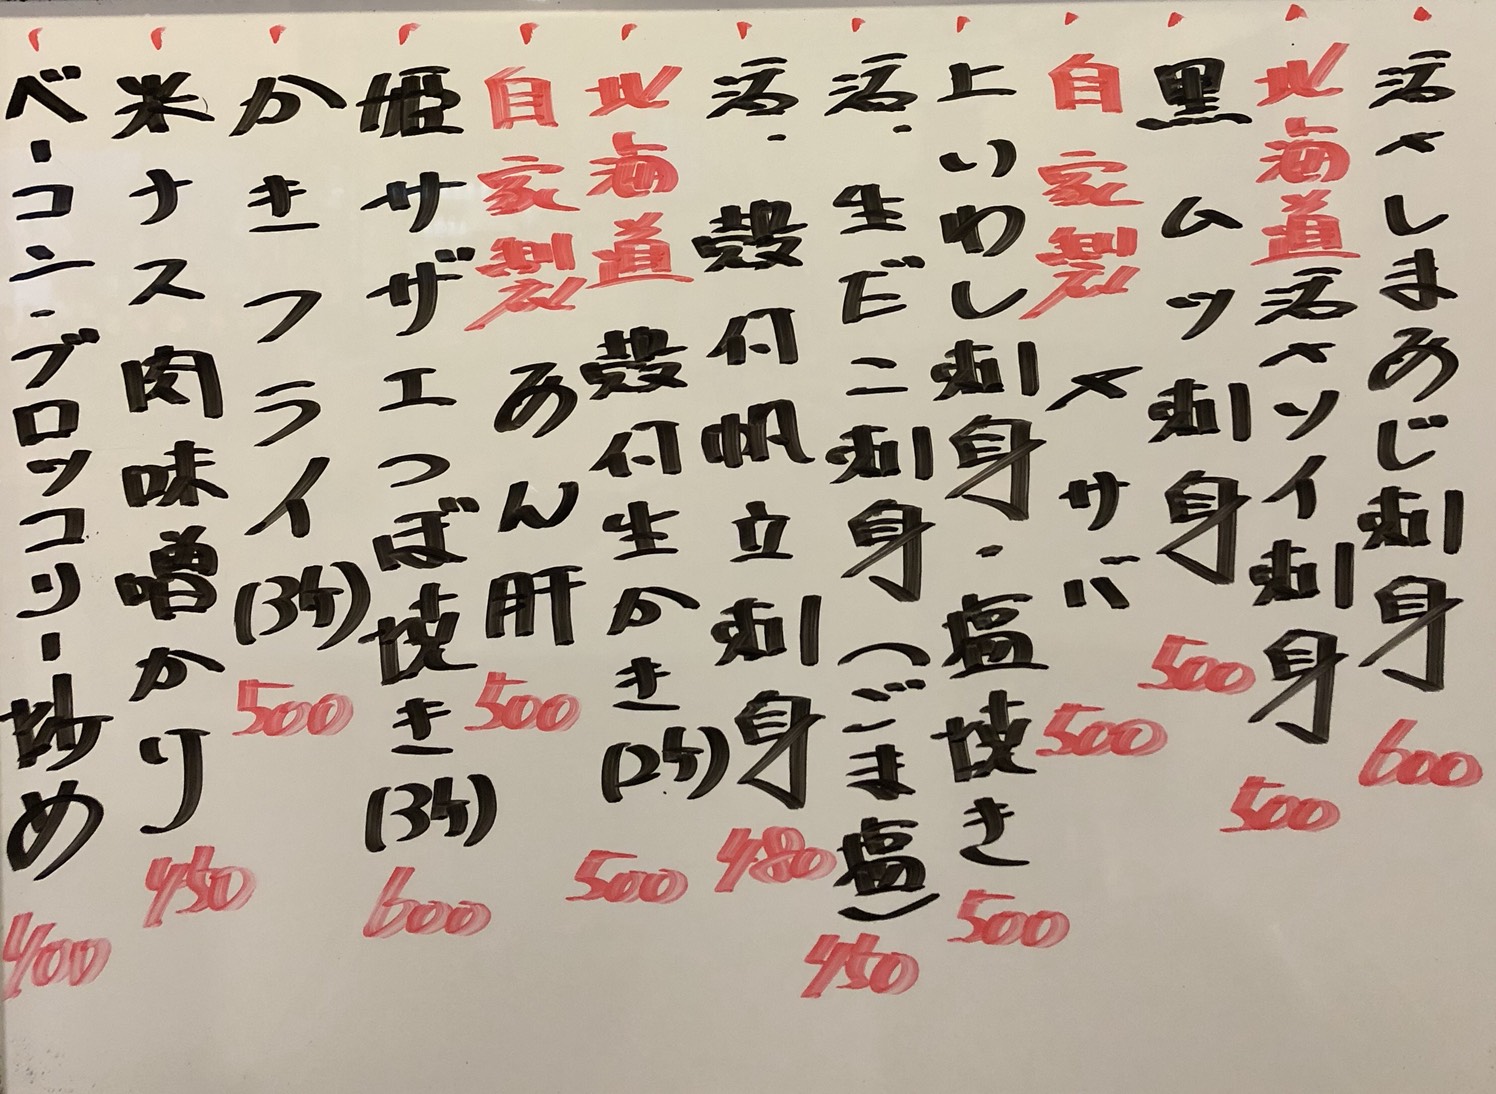 活〆しまあじ刺身 600
北海道活〆ソイ刺身 500
黒ムツ刺身 500
自家製〆サバ 500
上いわし刺身・塩焼き 500
活・生だこ刺身(ごま塩) 450
活・殻付帆立刺身 480
北海道殻付生かき(2ケ) 500
自家製あん肝 500
姫サザエつぼ焼き(3ケ) 600
かきフライ(3ケ) 500
米ナス肉味噌かり 450
ベーコン・ブロッコリー炒め 400